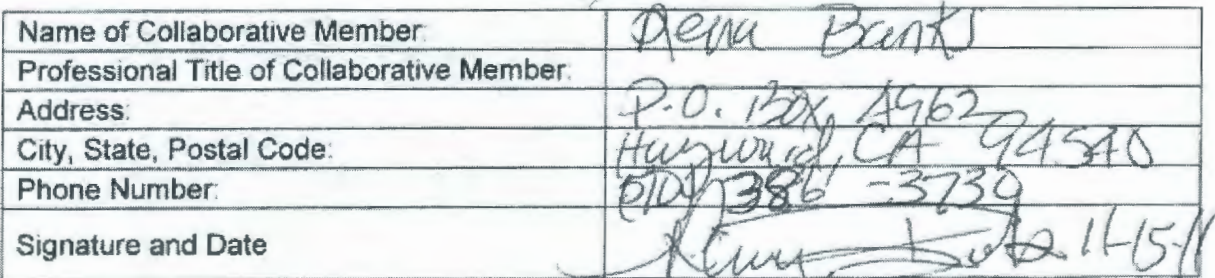 Name of Collaborative Member: Rena Banks
Professional Title of Collaborative Member:
Address: P.O. Box 4962
City, State, Postal Code: Hayward, CA 94540
Phone Number: (510) 386-3739
Signature and Date 11-15-11